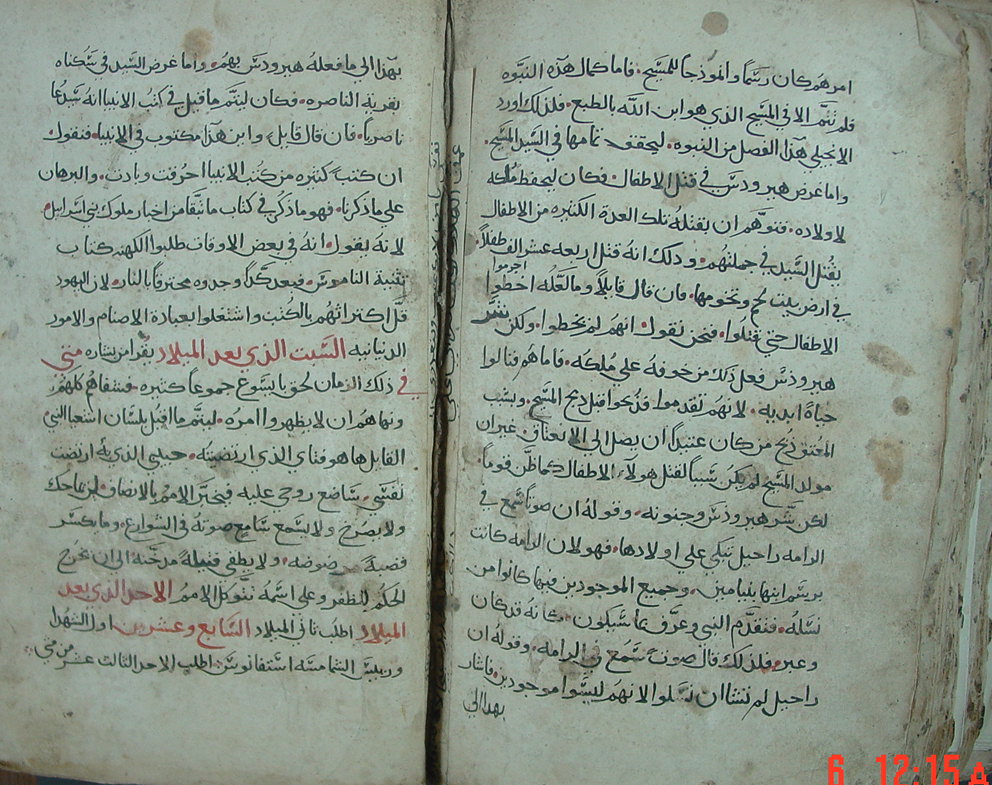 امرهم كان رسماً وانموذجاً للمسيح. فاما كمال هذه النبوه
فلم تتم الا في المسيح الذي هو ابن الله بالطبع. فلذلك اورد
الانجلي هذا الفصل من النبوه. ليحقق تمامها في السيد المسيح.
واما غرض هيرودس في قتل الاطفال. فكان ليحفظ ملكه
لاولاده. فتوهم ان بقتله تلك العدة الكثيره من الاطفال
يقتل السيد في جملتهم. وذلك انه قتل اربعه عشر الف طفلاً.
في ارض بيت لحم وتخومها. فان قال قايلاً وما لعله اخطوا
اجرموا
الاطفال حتي قتلوا. فنحن نقول انهم لم يخطوا. ولكن
هيرودس فعل ذلك من خوفه علي ملكه. فاما هم فنالوا
حياة ابديه. لانهم تقدموا فذبحوا قبل ذبح المسيح.
ذبح من كان عتيداً ان يصل الي الانعتاق. غير ان
مولد المسيح لم يكن سبباً لقتل هولاء الاطفال كما ظن قوماً.
لكن شر هيرودس وجنونه. وقوله ان صوتاً سمع في
الرامه راحيل تبكي علي اولادها. فهو لان الرامه كانت
برسم ابنها بنيامين. وجميع الموجودين فيها كانوا من
نسله. فتقدم النبي وعرف بما سيكون. كانه قد كان
وعبر. فلذلك قال صوت سمع في الرامه. وقوله ان
راحيل لم تشا ان تسلوا لانهم ليسوا موجودين. فاشار
بهذا الي
بهذا الي ما فعله هيرودس بهم. واما غرض السيد في سكناه
بقرية الناصره. فكان ليتم ما قيل في كتب الانبيا انه سيدعا
ناصرياً. فان قال قايل. واين هذا مكتوب في الانبيا. فنقول
ان كتب كثيره من كتب الانبيا احرقت وبادت. والبرهان
علي ما ذكرنا. فهو ما ذكر في كتاب ما تبقا من اخبار ملوك بني اسرايل.
لانه يقول. انه في بعض الاوقات طلبوا الكهنه كتاب
تثنية الناموس. فبعد كد وجدوه محترقاً بالنار. لان اليهود
قل اكتراثهم بالكتب واشتغلوا بعبادة الاصنام والامور
الدنيانيه السبت الذي بعد الميلاد يقرا من بشاره متي
في ذلك الزمان لحق بايسوع جموعاً كثيره. فشفاهم كلهم.
ونهاهم ان لا يظهروا امره. ليتم ما قيل بلسان اشعيا النبي
القايل ها هو فتاي الذي ارتضيته. حبيبي الذي به ارتضت
نفسي. ساضع روحي عليه فيخبر الامم بالانصاف. لن يماحك
ولا يصرخ ولا يسمع سامع صوته في الشوارع. وما يكسر
قصبة مرضوضه. ولا يطفي فتيلة مدخنه الي ان يخرج
الحكم للظفر وعلي اسمه تتوكل الامم الاحد الذي بعد
الميلاد اطلب ثاني الميلاد السابع وعشرين اول الشهدا
وريس الشمامسه استفانوس. اطلب الاحد الثالث عشر من متي
6 12:15